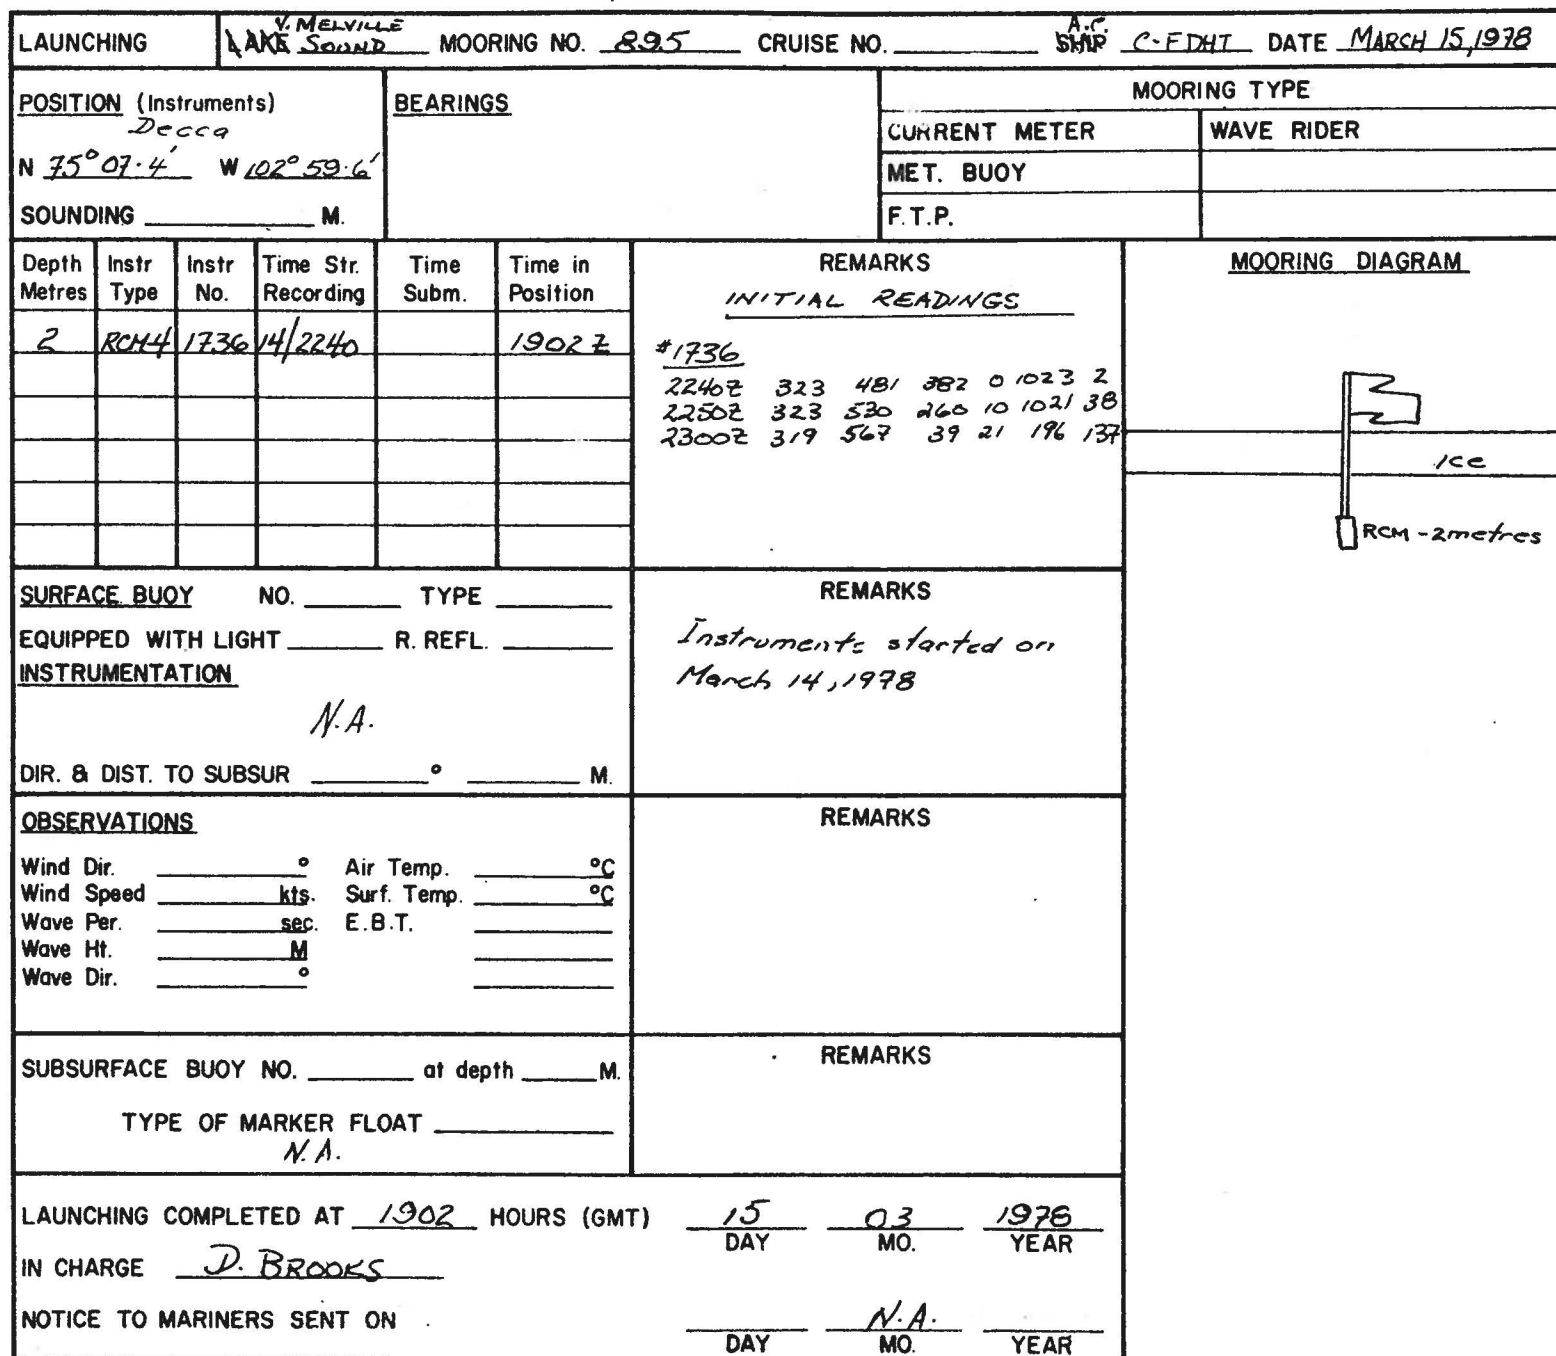 LAUNCHING LAKE V. MELVILLE SOUND MOORING NO. 895 CRUISE NO. SHIP A.C. C-FDHT DATE MARCH 15, 1978
POSITION (Instruments)
Decca
N 75° 07.4' W 102° 59.6'
SOUNDING M.
BEARINGS
MOORING TYPE
CURRENT METER WAVE RIDER
MET. BUOY
F.T.P.
Depth Metres Instr Type Instr No. Time Str. Recording Time Subm. Time in Position
2 RCM4 1736 14/2240 1902 Z
REMARKS
INITIAL READINGS
#1736
2240Z 323 481 382 0 1023 2
2250Z 323 530 260 10 1021 38
2300Z 319 567 39 21 196 137
MOORING DIAGRAM
Ice
RCM - 2 metres
SURFACE BUOY NO. TYPE
EQUIPPED WITH LIGHT R. REFL.
INSTRUMENTATION
N.A.
DIR. & DIST. TO SUBSUR ° M.
REMARKS
Instruments started on
March 14, 1978
OBSERVATIONS
Wind Dir. ° Air Temp. °C
Wind Speed kts. Surf. Temp. °C
Wave Per. sec. E.B.T.
Wave Ht. M
Wave Dir. °
REMARKS
SUBSURFACE BUOY NO. at depth M.
TYPE OF MARKER FLOAT
N.A.
REMARKS
LAUNCHING COMPLETED AT 1902 HOURS (GMT) 15 03 1978
DAY MO. YEAR
IN CHARGE D. BROOKS
NOTICE TO MARINERS SENT ON N.A.
DAY MO. YEAR